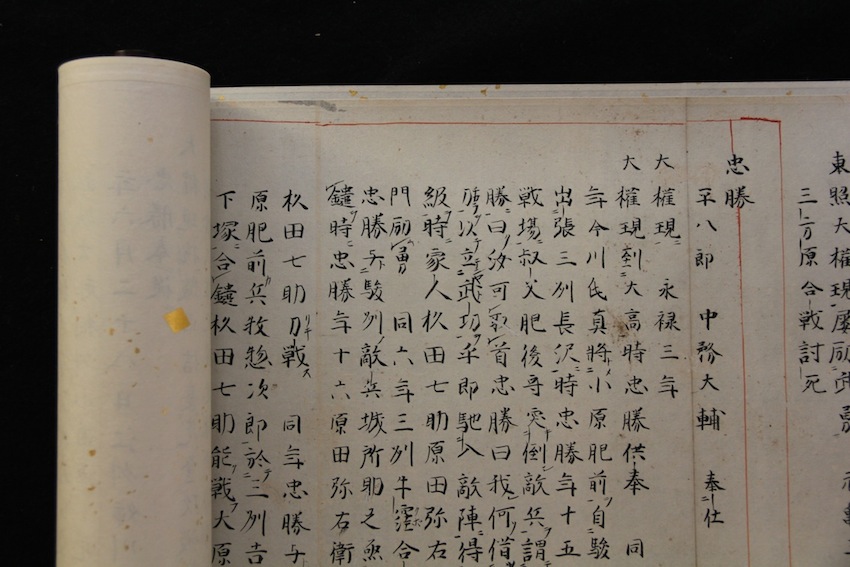 東照大權現屬
三方原合戰討死
忠勝
平八郎 中務大輔 奉仕
大權現 永禄三年
大權現到大高時忠勝供奉 同
年今川氏真將小原肥前自駿
出張三列長沢時忠勝年十五
戰場叔父肥後守突倒敵兵謂
勝曰汝可取首忠勝曰我何借
次立武切卒即馳入敵陣得
級時家人杦田七助原田弥右
門励勇 同六年三列牛窪合
忠勝与駿列敵兵城所助之
鑓時忠勝年十六原田弥右衛
杦田七助刀戰 同年忠勝与
原肥前兵牧惣次郎於三列吉
下塚合鑓杦田七助能戰大原